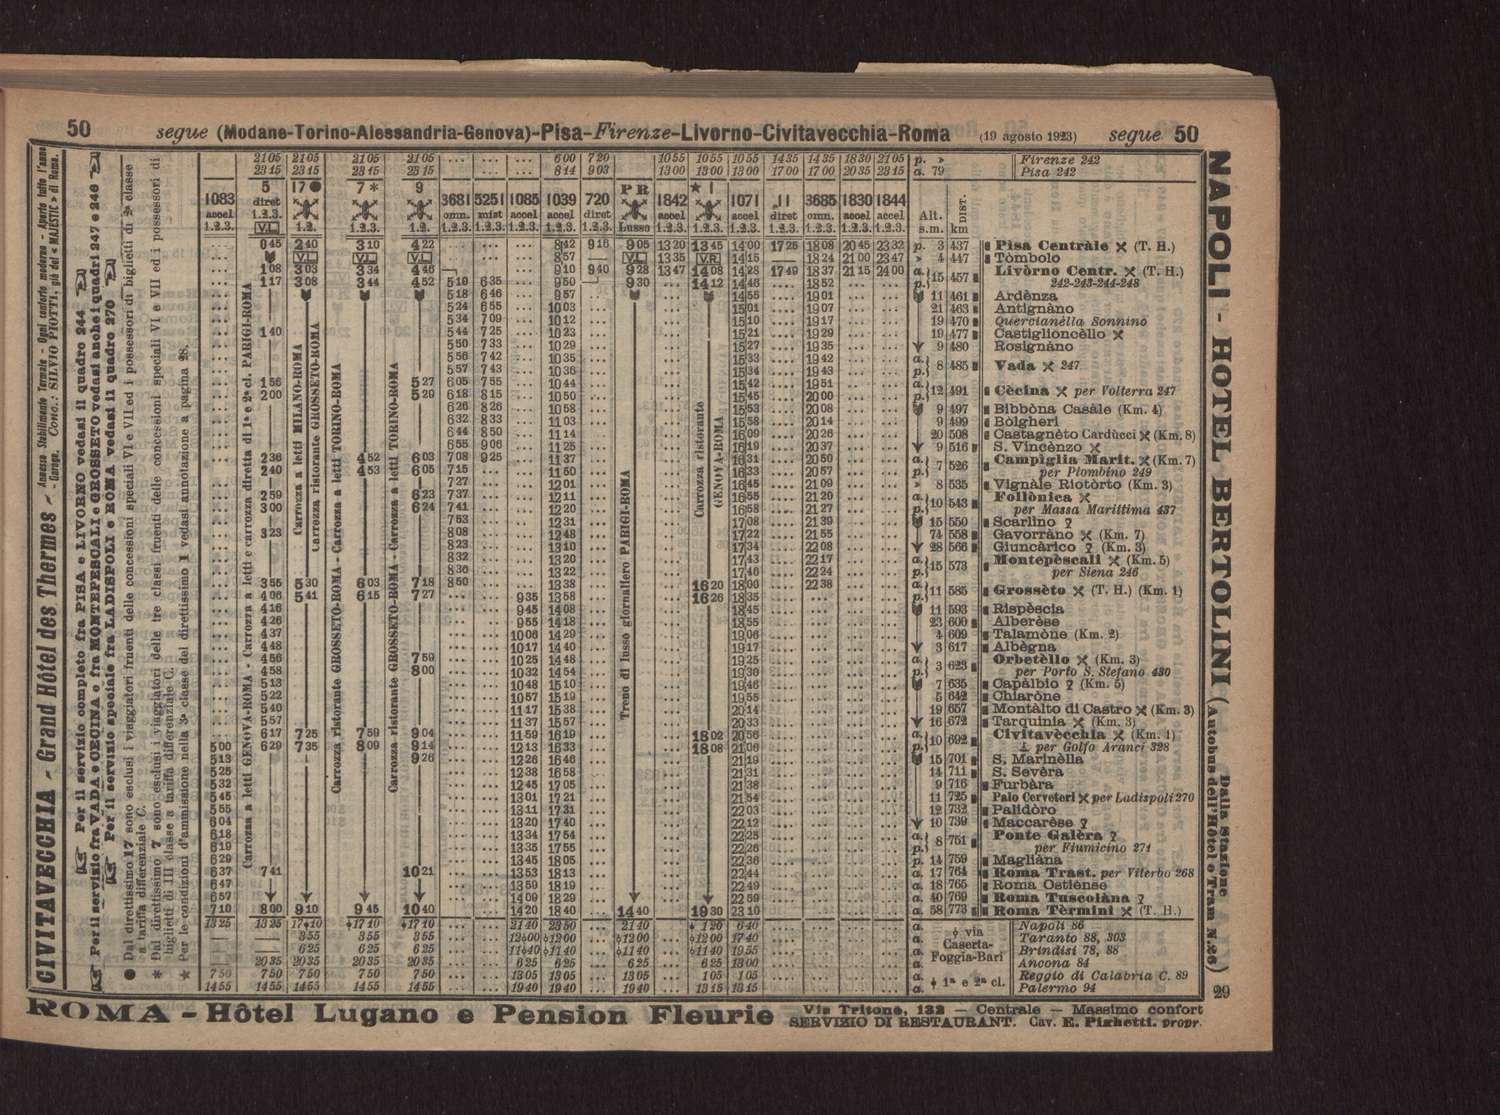 50 segue (Modane-Torino-Alessandria-Genova)-Pisa-Firenze-Livorno-Civitavecchia-Roma (19 agosto 1923) segue 50
CIVITAVECCHIA - Grand Hôtel des Thermes
Annesso Stabilimento Termale - Ogni conforto moderno - Aperto tutto l'anno
Garage. Conc.: SILVIO PIOTTI, già del « MAJESTIC » di Roma.
Per il servizio completo fra PISA e LIVORNO vedasi il quadro 244
Per il servizio fra VADA e CECINA e fra MONTEPESCALI e GROSSETO vedasi anche i quadri 247 e 246
Per il servizio speciale fra LADISPOLI e ROMA vedasi il quadro 270
● Dal direttissimo 17 sono esclusi i viaggiatori fruenti delle concessioni speciali VI e VII ed i possessori di biglietti di 2ª classe
a tariffa differenziale C.
* Dal direttissimo 7 sono esclusi i viaggiatori delle tre classi fruenti delle concessioni speciali VI e VII ed i possessori di
biglietti di III classe a tariffa differenziale C.
★ Per le condizioni d'ammissione nella 3ª classe del direttissimo 1 vedasi annotazione a pagina 28.
21 05 21 05 21 05 21 05 ... ... ... 6 00 7 20 10 55 10 55 10 55 14 35 14 35 18 30 21 05 p. » Firenze 242
23 15 23 15 23 15 23 15 ... ... ... 8 14 9 03 13 00 13 00 13 00 17 00 17 00 20 35 23 15 a. 79 Pisa 242
1083 5 17 ● 7 * 9 3681 5251 1085 1039 720 P R 1842 ★ 1 1071 11 3685 1830 1844
accel diret omn. mist accel accel diret Lusso accel accel diret omn. accel accel Alt. s.m. DIST. km
... 0 45 2 40 3 10 4 22 ... ... ... 8 42 9 16 9 05 13 20 13 45 14 00 17 25 18 08 20 45 23 32 p. 3 437 Pisa Centràle (T. H.)
8 57 13 35 14 15 18 24 21 00 23 47 » 4 447 Tòmbolo
1 08 3 03 3 34 4 46 9 10 9 40 9 28 13 47 14 08 14 28 17 49 18 37 21 15 24 00 a. 15 457 Livòrno Centr. (T. H.)
1 17 3 08 3 44 4 52 5 10 6 35 9 50 9 30 14 12 14 46 18 52 p. 242-243-244-248
5 18 6 46 9 57 14 55 19 01 11 461 Ardènza
5 24 6 55 10 03 15 01 19 07 21 463 Antignàno
5 34 7 09 10 12 15 10 19 17 19 470 Quercianèlla Sonnino
1 40 5 44 7 25 10 23 15 21 19 29 19 477 Castiglioncèllo
5 50 7 33 10 29 15 27 19 35 9 480 Rosignàno
5 56 7 42 10 35 15 33 19 42 a. 8 485 Vada 247
5 57 7 43 10 36 15 34 19 43 p.
1 56 5 27 6 05 7 55 10 44 15 42 19 51 a. 12 491 Cècina per Volterra 247
2 00 5 29 6 18 8 15 10 50 15 45 20 00 p.
6 26 8 26 10 58 15 53 20 08 9 497 Bibbòna Casàle (Km. 4)
6 32 8 33 11 03 15 58 20 14 9 499 Bòlgheri
6 44 8 50 11 14 16 09 20 26 20 508 Castagnèto Carducci (Km. 8)
6 55 9 06 11 25 16 19 20 37 9 516 S. Vincènzo
2 36 4 52 6 03 7 08 9 25 11 37 16 31 20 50 a. 7 526 Campiglia Marit. (Km. 7)
2 40 4 53 6 05 7 15 11 50 16 33 20 57 p. per Piombino 249
7 27 12 01 16 45 21 09 » 8 535 Vignàle Riotòrto (Km. 3)
2 59 6 23 7 37 12 11 16 55 21 20 a. 10 543 Follònica
3 00 6 24 7 41 12 20 16 58 21 27 p. per Massa Marittima 437
7 53 12 31 17 08 21 39 15 550 Scarlino
3 23 8 08 12 48 17 22 21 55 74 558 Gavorràno (Km. 7)
8 23 13 10 17 34 22 08 28 566 Giuncàrico (Km. 3)
8 32 13 20 17 43 22 17 a. 15 573 Montepèscali (Km. 5)
8 36 13 22 17 46 22 24 p. per Siena 246
3 55 5 30 6 03 7 18 8 50 13 38 16 20 18 00 22 38 a. 11 585 Grossèto (T. H.) (Km. 1)
4 06 5 41 6 15 7 27 9 35 13 58 16 26 18 35 p.
4 16 9 45 14 08 18 45 11 593 Rispèscia
4 26 9 55 14 18 18 55 23 600 Alberèse
4 37 10 06 14 29 19 06 4 609 Talamòne (Km. 2)
4 48 10 17 14 40 19 17 3 617 Albègna
4 56 7 59 10 25 14 48 19 25 a. 3 623 Orbetèllo (Km. 3)
4 58 8 00 10 32 14 54 19 36 p. per Porto S. Stefano 430
5 13 10 48 15 10 19 46 7 635 Capàlbio (Km. 5)
5 22 10 57 15 19 19 55 5 642 Chiaròne
5 40 11 17 15 38 20 14 19 657 Montàlto di Castro (Km. 3)
5 57 11 37 15 57 20 33 16 672 Tarquinia (Km. 3)
6 17 7 25 7 59 9 04 11 59 16 19 18 02 20 56 a. 10 692 Civitavècchia (Km. 1)
5 00 6 29 7 35 8 09 9 14 12 13 16 33 18 08 21 06 p. per Golfo Aranci 328
5 13 9 26 12 26 16 46 21 19 15 701 S. Marinèlla
5 25 12 38 16 58 21 31 14 711 S. Sevèra
5 32 12 45 17 05 21 38 9 716 Furbàra
5 45 13 01 17 21 21 54 11 725 Palo Cerveteri per Ladispoli 270
5 55 13 11 17 31 22 03 12 732 Palidòro
6 04 13 20 17 40 22 12 10 739 Maccarèse
6 18 13 34 17 54 22 25 a. 8 751 Ponte Galèra
6 19 13 35 17 55 22 26 p. per Fiumicino 271
6 29 13 45 18 05 22 36 p. 14 759 Magliàna
6 37 7 41 10 21 13 53 18 13 22 44 a. 17 764 Roma Trast. per Viterbo 268
6 47 13 59 18 19 22 49 a. 18 765 Roma Ostiènse
6 57 14 09 18 29 22 59 a. 40 769 Roma Tuscolàna
7 10 8 00 9 10 9 45 10 40 14 20 18 40 14 40 19 30 23 10 a. 58 773 Roma Tèrmini (T. H.)
13 25 13 25 17 10 17 10 17 10 21 40 23 50 21 40 1 20 6 40 a. Napoli 86
3 55 3 55 3 55 12 00 12 00 12 00 12 00 17 40 a. Taranto 88, 303
6 25 6 25 6 25 11 40 11 40 11 40 11 40 19 55 a. Brindisi 78, 88
20 35 20 35 20 35 20 35 6 25 6 25 6 25 6 25 13 00 a. Ancona 84
7 50 7 50 7 50 7 50 7 50 13 05 13 05 13 05 1 05 1 05 a. Reggio di Calabria C. 89
14 55 14 55 14 55 14 55 14 55 19 40 19 40 19 40 13 15 13 15 a. Palermo 94
via
Caserta-
Foggia-Bari
1ª e 2ª cl.
Carrozza a letti GENOVA-ROMA - Carrozza a letti e carrozza diretta di 1ª e 2ª cl. PARIGI-ROMA
Carrozza a letti MILANO-ROMA
Carrozza ristorante GROSSETO-ROMA
Carrozza ristorante GROSSETO-ROMA - Carrozza a letti TORINO-ROMA
Carrozza ristorante GROSSETO-ROMA - Carrozza a letti TORINO-ROMA
Treno di lusso giornaliero PARIGI-ROMA
Carrozza ristorante
GENOVA-ROMA
NAPOLI - HOTEL BERTOLINI (Dalla Stazione
Autobus dell'Hôtel e Tram N. 26)
29
ROMA - Hôtel Lugano e Pension Fleurie Via Tritone, 132 — Centrale — Massimo confort
SERVIZIO DI RESTAURANT. Cav. E. Pighetti. propr.